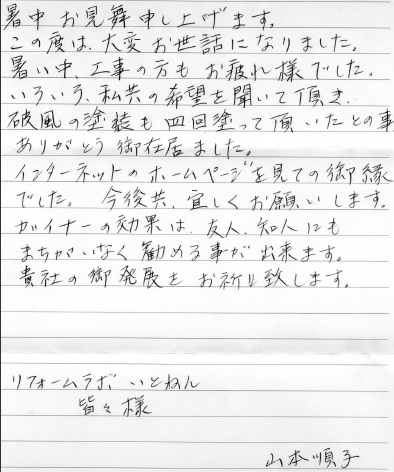 暑中 お見舞申し上げます。
この度は、大変お世話になりました。
暑い中、工事の方もお疲れ様でした。
いろいろ、私共の希望を聞いて頂き、
破風の塗装も四回塗って頂いたとの事
ありがとう御在居ました。
インターネットのホームページを見ての御縁
でした。 今後共、宜しくお願いします。
ガイナーの効果は、友人、知人にも
まちがいなく勧める事が出来ます。
貴社の御発展をお祈り致します。
リフォームラボ いとねん
皆々様
山本順子